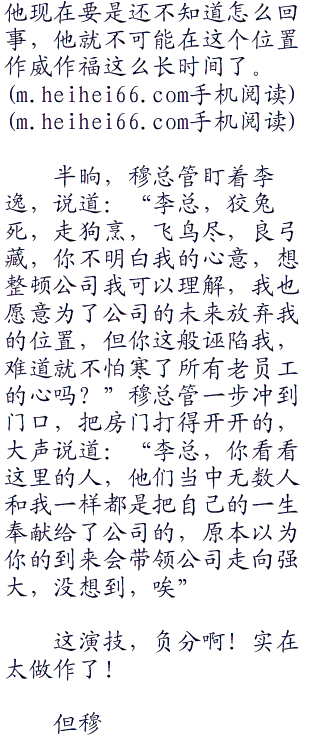 他现在要是还不知道怎么回
事，他就不可能在这个位置
作威作福这么长时间了。
(m.heihei66.com手机阅读)
(m.heihei66.com手机阅读)
半晌，穆总管盯着李
逸，说道：“李总，狡兔
死，走狗烹，飞鸟尽，良弓
藏，你不明白我的心意，想
整顿公司我可以理解，我也
愿意为了公司的未来放弃我
的位置，但你这般诬陷我，
难道就不怕寒了所有老员工
的心吗？”穆总管一步冲到
门口，把房门打得开开的，
大声说道：“李总，你看看
这里的人，他们当中无数人
和我一样都是把自己的一生
奉献给了公司的，原本以为
你的到来会带领公司走向强
大，没想到，唉”
这演技，负分啊！实在
太做作了！
但穆